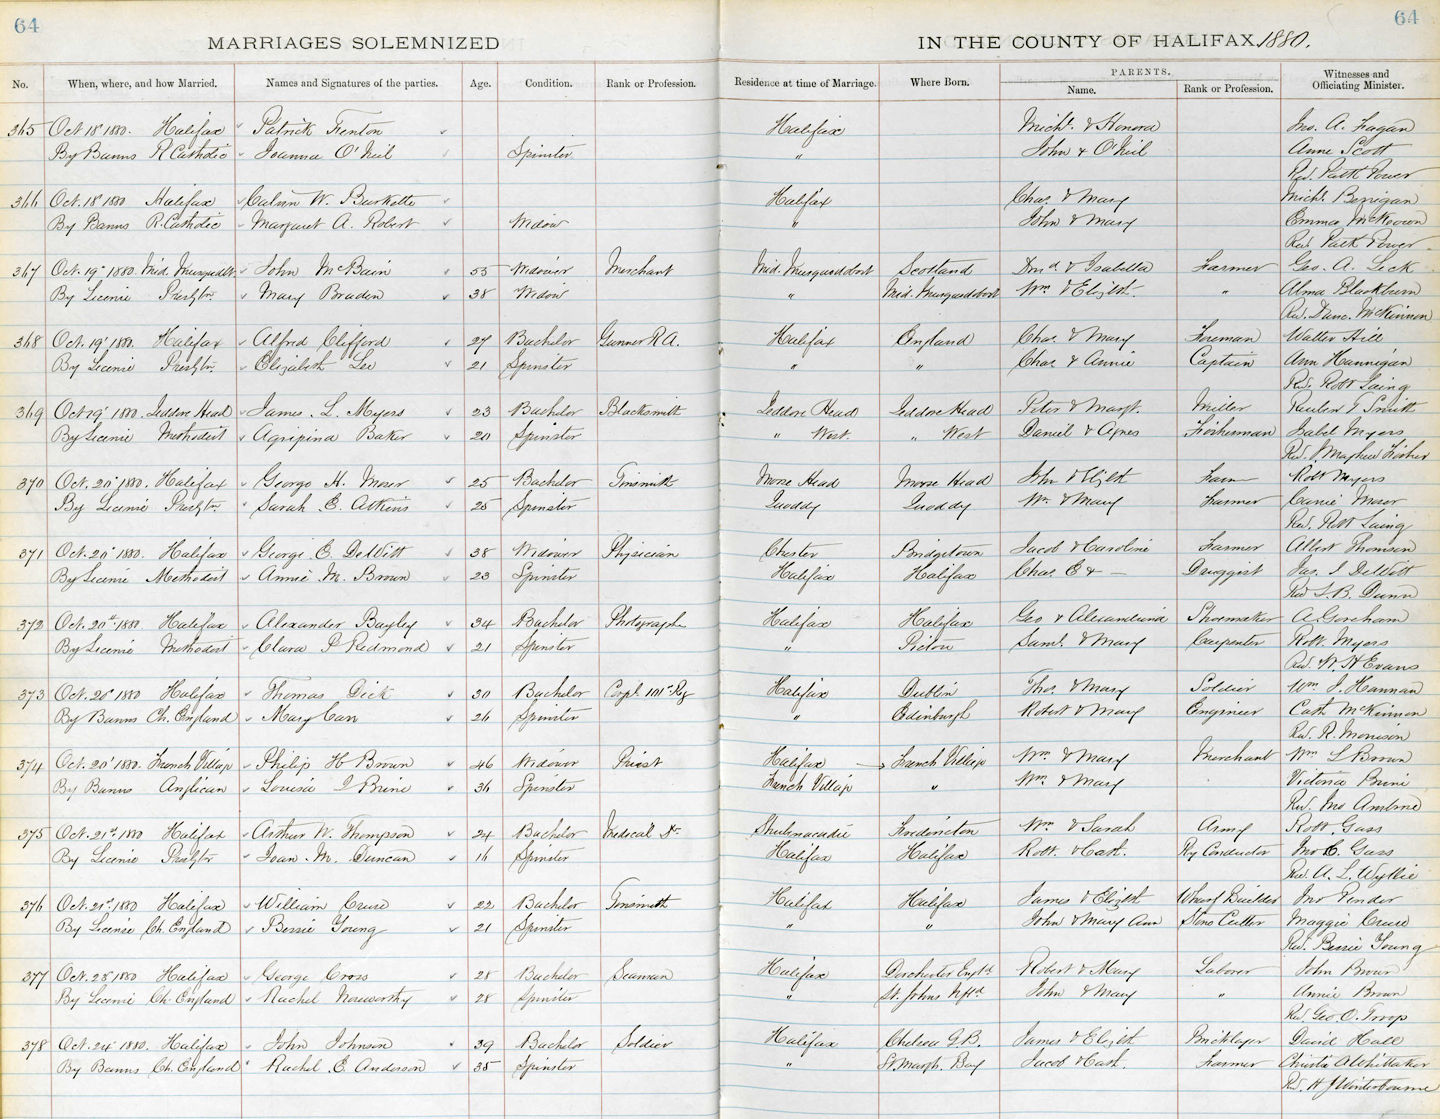 64
64
MARRIAGES SOLEMNIZED IN THE COUNTY OF HALIFAX 1880.
No. When, where, and how Married. Names and Signatures of the parties. Age. Condition. Rank or Profession. Residence at time of Marriage. Where Born. PARENTS. Name. Rank or Profession. Witnesses and Officiating Minister.
365 Oct. 18' 1880. Halifax Patrick Fenton Halifax Micht. & Honora Jno. A. Fagan
By Banns R Catholic Joanna O'Neil Spinster " John & O'Neil Anne Scott
Rev. Patk Power
366 Oct. 18' 1880 Halifax Calvin W. Burkette Halifax Chas. & Mary Micht. Berrigan
By Banns R. Catholic Margaret A. Robert Widow " John & Mary Emma McKeown
Rev. Patk Power
367 Oct. 19' 1880. Mid. Musquodobt. John McBain 55 Widower Merchant Mid. Musquodoboit Scotland Dond & Isabella Farmer Geo. A. Leck
By License Presbytn. Mary Braden 38 Widow " Mid. Musquodoboit Wm. & Elizbt. " Alma Blackburn
Rev. Dunc. McKinnon
368 Oct. 19' 1880. Halifax Alfred Clifford 27 Bachelor Gunner R.A. Halifax England Chas. & Mary Foreman Walter Hill
By License Presbytn. Elizabeth Lee 21 Spinster " " Chas. & Annie Captain Ann Hannigan
Rev. Robt Laing
369 Oct 19' 1880. Jeddore Head James L. Myers 23 Bachelor Blacksmith Jeddore Head Jeddore Head Peter & Margt. Miller Reuben T Smith
By License Methodist Agripina Baker 20 Spinster " West. " West Daniel & Agnes Fisherman Isabel Myers
Rev. J Mathew Fisher
370 Oct. 20' 1880. Halifax George H. Moser 25 Bachelor Tinsmith Moose Head Moose Head John & Elizth Farm Robt Myers
By License Presbytn. Sarah E. Atkins 25 Spinster Quoddy Quoddy Wm. & Mary Farmer Carrie Moser
Rev. Robt Laing
371 Oct. 20' 1880. Halifax George E. DeWitt 38 Widower Physician Chester Bridgetown Jacob & Caroline Farmer Albert Thomson
By License Methodist Annie M. Brown 23 Spinster Halifax Halifax Chas. E & — Druggist Jas. I DeWitt
Rev S. B. Dunn
372 Oct. 20th 1880 Halifax Alexander Bayley 34 Bachelor Photograph Halifax Halifax Geo & Alexandrina Shoemaker A Goreham
By License Methodist Clara P Redmond 21 Spinster " Pictou Saml. & Mary Carpenter Robt. Myers
Rev W. H Evans
373 Oct. 20' 1880 Halifax Thomas Dick 30 Bachelor Corpl 101st Rg Halifax Dublin Thos. & Mary Soldier Wm. J. Hannan
By Banns Ch. England Mary Carr 26 Spinster " Edinburgh Robert & Mary Engineer Cath McKinnon
Rev. R. Morrison
374 Oct. 20' 1880. French Village Philip H Brown 46 Widower Priest Halifax French Village Wm & Mary Merchant Wm L Brown
By Banns Anglican Louisa I Brine 36 Spinster French Village " Wm. & Mary Victoria Brine
Rev. Jno Ambrose
375 Oct. 21st. 1880 Halifax Arthur W. Thompson 24 Bachelor Medical Dr. Shubenacadie Fredericton Wm & Sarah Army Robt. Gass
By License Presbytn Joan M. Duncan 16 Spinster Halifax Halifax Robt. & Cath. Ry Conductor Jno C. Gass
Rev. A. L. Wyllie
376 Oct. 21st. 1880 Halifax William Cruse 22 Bachelor Tinsmith Halifax Halifax James & Elizbth Wharf Builder Jno Pender
By License Ch. England Bessie Young 21 Spinster " " John & Mary Ann Stone Cutter Maggie Cruse
Rev. Bessie Young
377 Oct. 23' 1880 Halifax George Cross 28 Bachelor Seaman Halifax Dorchester Engld Robert & Mary Laborer John Brown
By License Ch. England Rachel Noseworthy 28 Spinster " St. Johns Nfld John & Mary " Annie Brown
Rev. Geo O. Troop
378 Oct. 24' 1880. Halifax John Johnson 39 Bachelor Soldier Halifax Chelsea G.B. James & Elizbth Bricklayer David Hall
By Banns Ch. England Rachel E Anderson 35 Spinster " St. Margts. Bay Jacob & Cath. Farmer Christie A Whittaker
Rev. H J Winterbourne